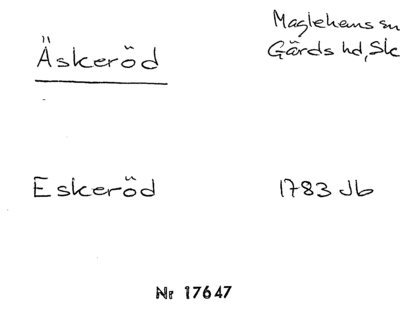 Äskeröd
Maglehems sn
Gärds hd, Sk
Eskeröd
1783 Jb
Nr 17647